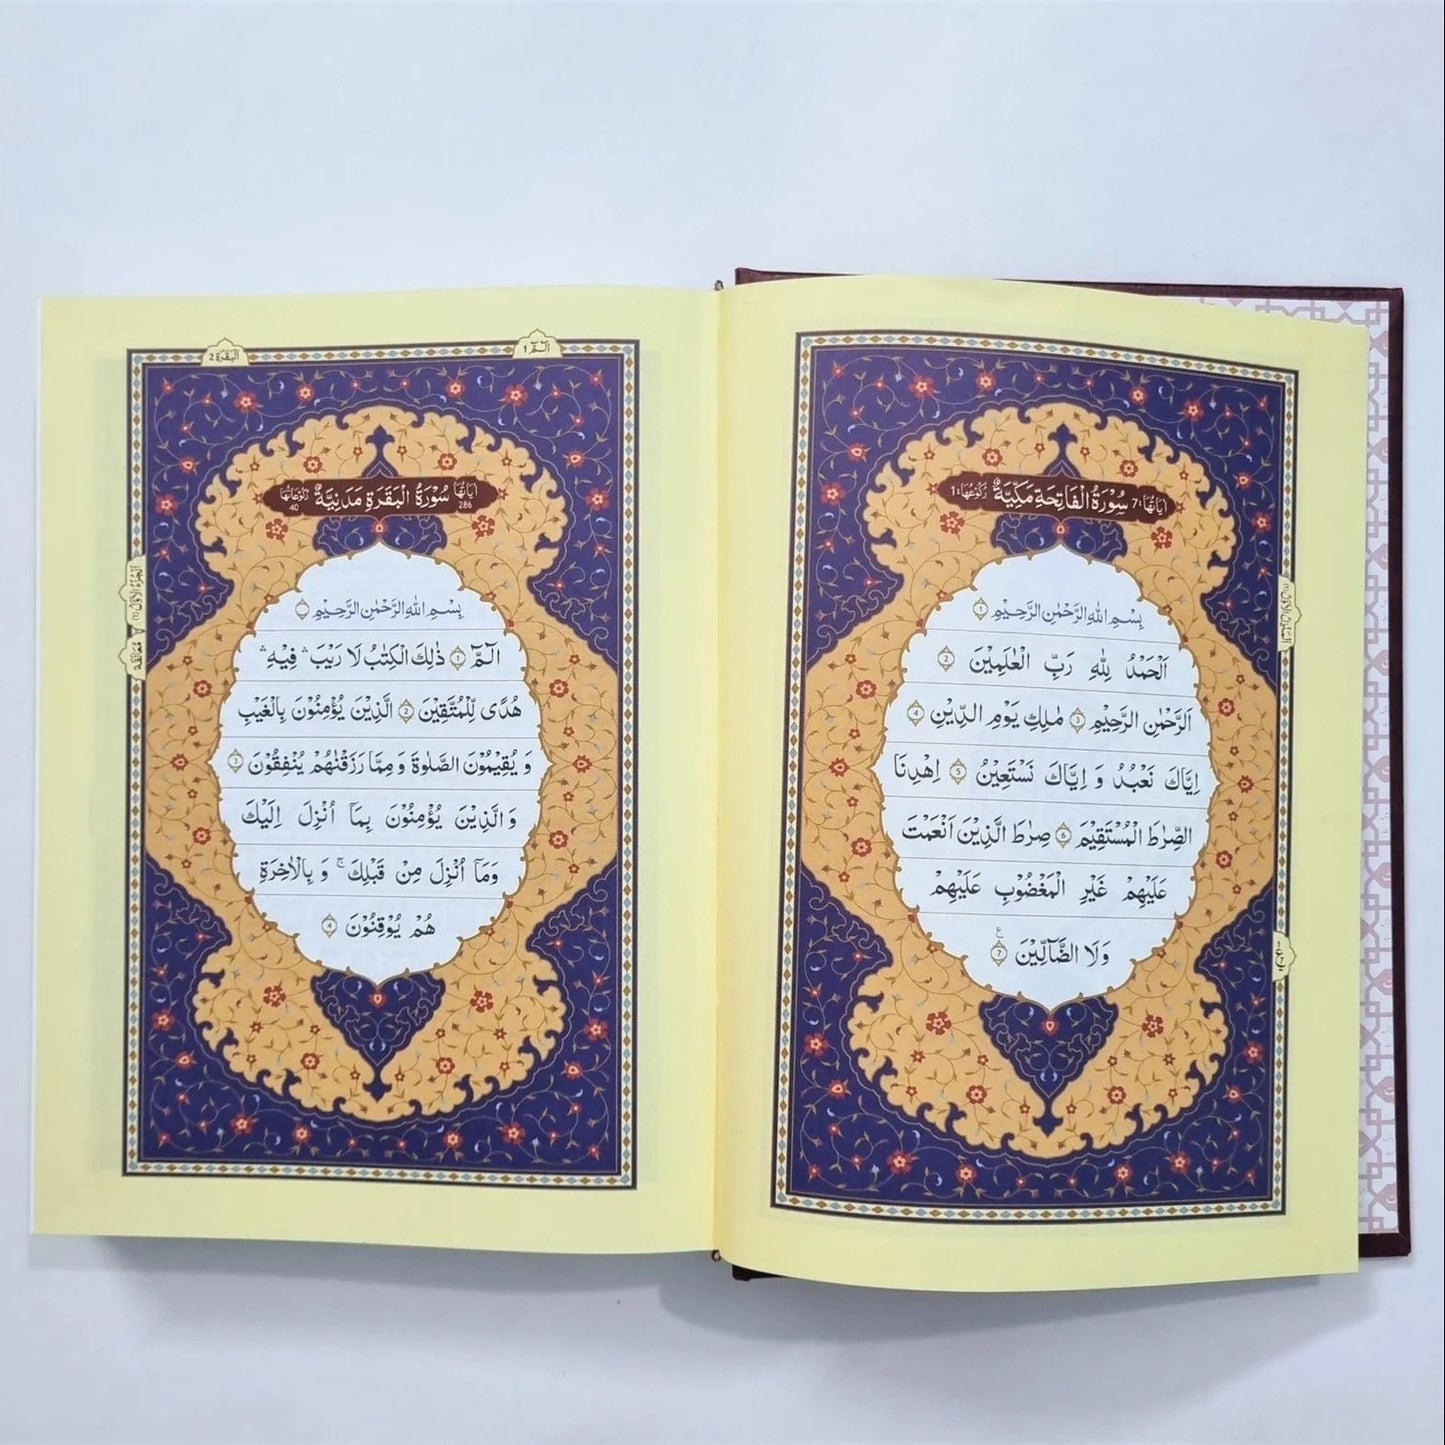 اٰيَاتُهَا: 7 سُوْرَةُ الْفَاتِحَةِ مَكِّيَّةٌ رُكُوْعُهَا: 1
بِسْمِ اللّٰهِ الرَّحْمٰنِ الرَّحِيْمِ ۝۱
اَلْحَمْدُ لِلّٰهِ رَبِّ الْعٰلَمِيْنَ ۝2
الرَّحْمٰنِ الرَّحِيْمِ ۝3 مٰلِكِ يَوْمِ الدِّيْنِ ۝۴
اِيَّاكَ نَعْبُدُ وَ اِيَّاكَ نَسْتَعِيْنُ ۝5 اِهْدِنَا
الصِّرَاطَ الْمُسْتَقِيْمَ ۝6 صِرَاطَ الَّذِيْنَ اَنْعَمْتَ
عَلَيْهِمْ غَيْرِ الْمَغْضُوْبِ عَلَيْهِمْ
وَلَا الضَّآلِّيْنَ ۝7 ع
الٓمّٓ 1
اَلْبَقَرَة 2
اٰيَاتُهَا 286 سُوْرَةُ الْبَقَرَةِ مَدَنِيَّةٌ رُكُوْعَاتُهَا 40
بِسْمِ اللّٰهِ الرَّحْمٰنِ الرَّحِيْمِ
الٓمّٓ ۝1 ذٰلِكَ الْكِتٰبُ لَا رَيْبَ ۛ فِيْهِ ۛ
هُدًى لِّلْمُتَّقِيْنَ ۝2 الَّذِيْنَ يُؤْمِنُوْنَ بِالْغَيْبِ
وَ يُقِيْمُوْنَ الصَّلٰوةَ وَ مِمَّا رَزَقْنٰهُمْ يُنْفِقُوْنَ ۝3
وَ الَّذِيْنَ يُؤْمِنُوْنَ بِمَآ اُنْزِلَ اِلَيْكَ
وَمَآ اُنْزِلَ مِنْ قَبْلِكَ ۚ وَ بِالْاٰخِرَةِ
هُمْ يُوْقِنُوْنَ ۝۴
اَلْجُزْءُ الْاَوَّلُ (1)
مُعَانَقَة